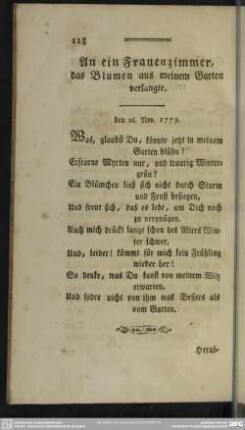 128
An ein Frauenzimmer,
das Blumen aus meinem Garten
verlangte.
den 26. Nov. 1779.
Was, glaubst Du, könnte jetzt in meinem
Garten blühn?
Erfrorne Myrten nur, und traurig Winter-
grün?
Ein Blümchen ließ sich nicht durch Sturm
und Frost besiegen,
Und freut sich, daß es lebt, um Dich noch
zu vergnügen.
Auch mich drückt lange schon des Alters Win-
ter schwer,
Und, leider! kömmt für mich kein Frühling
wieder her!
So denke, was Du kanst von meinem Witz
erwarten,
Und fodre nicht von ihm was Bessers als
vom Garten.
Herul-
DFG